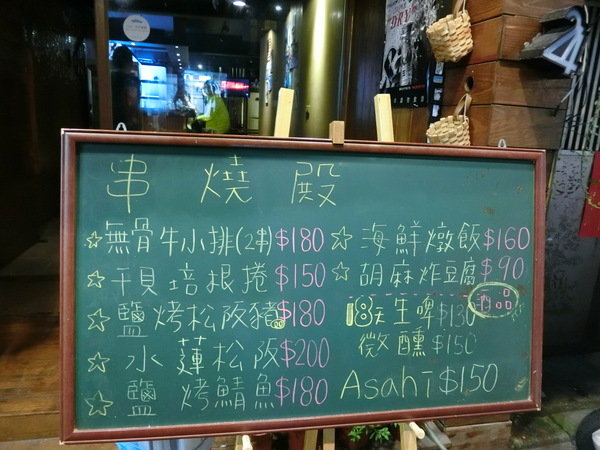 串燒殿
☆無骨牛小排(2串)$180
☆干貝培根捲$150
☆鹽烤松阪豬$180
☆水蓮松阪$200
☆鹽烤鯖魚$180
☆海鮮燉飯$160
☆胡麻炸豆腐$90
酒品
18天生啤$130
微醺$150
Asahi$150